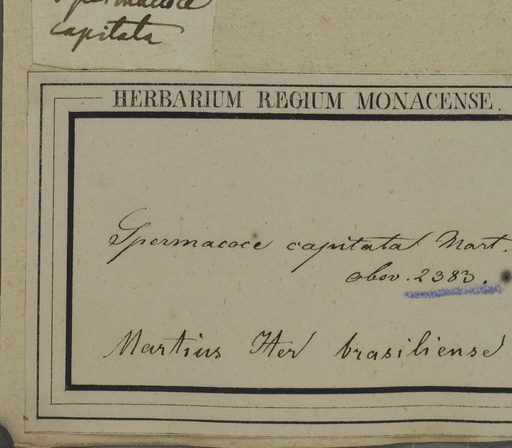 Spermacoce
capitata
HERBARIUM REGIUM MONACENSE.
Spermacoce capitata Mart.
obsv. 2383.
Martius Iter brasiliense